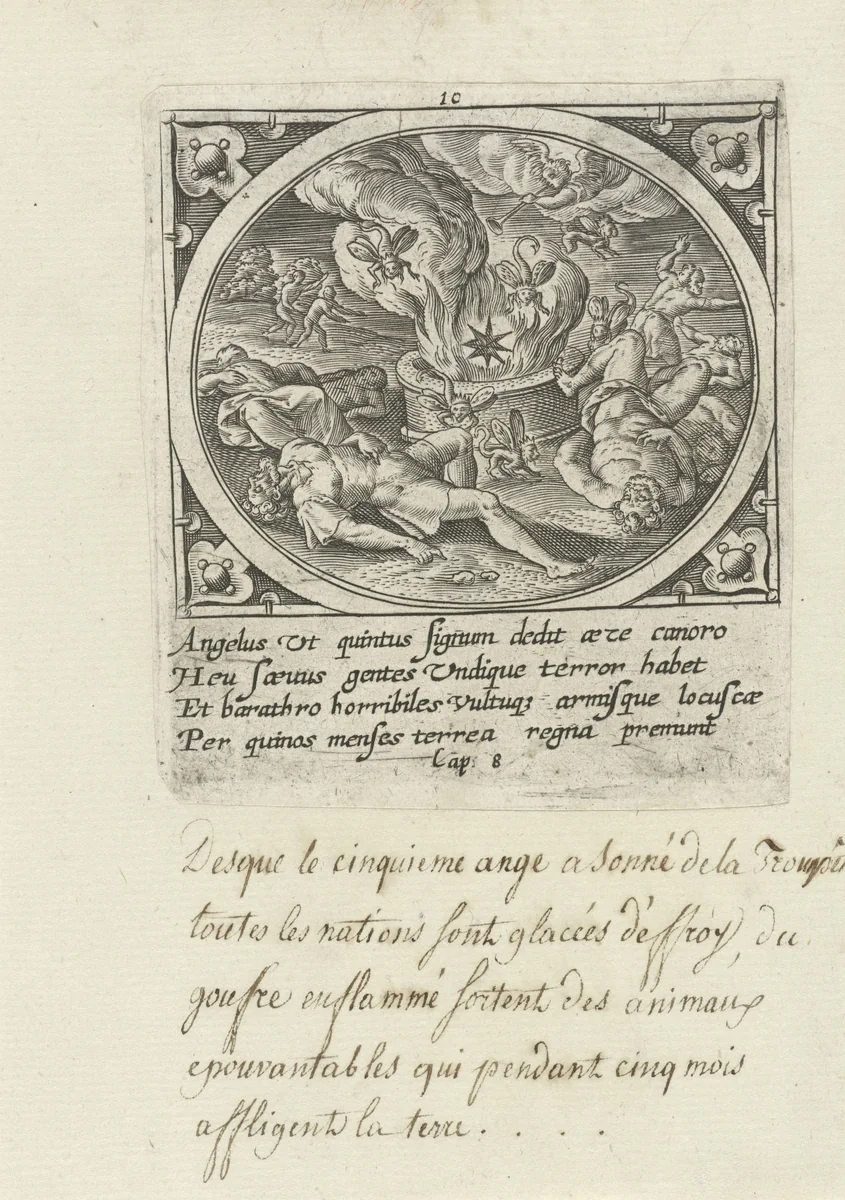 10
Angelus Vt quintus signum dedit ære canoro
Heu sæuus gentes Vndique terror habet
Et barathro horribiles Vultuqꝫ armisque locuscæ
Per quinos menses terrea regna premunt
Cap. 8
Desque le cinquieme ange a sonné de la
toutes les nations sont glacées déffroy, du
gouffre enflammé sortent des animaux
epouvantables qui pendant cinq mois
affligent la terre. . . . .